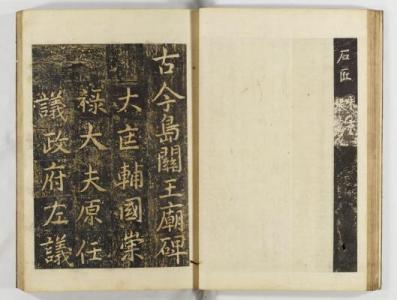 石匠
古今島關王廟碑
大匡輔國崇
祿大夫原任
議政府左議